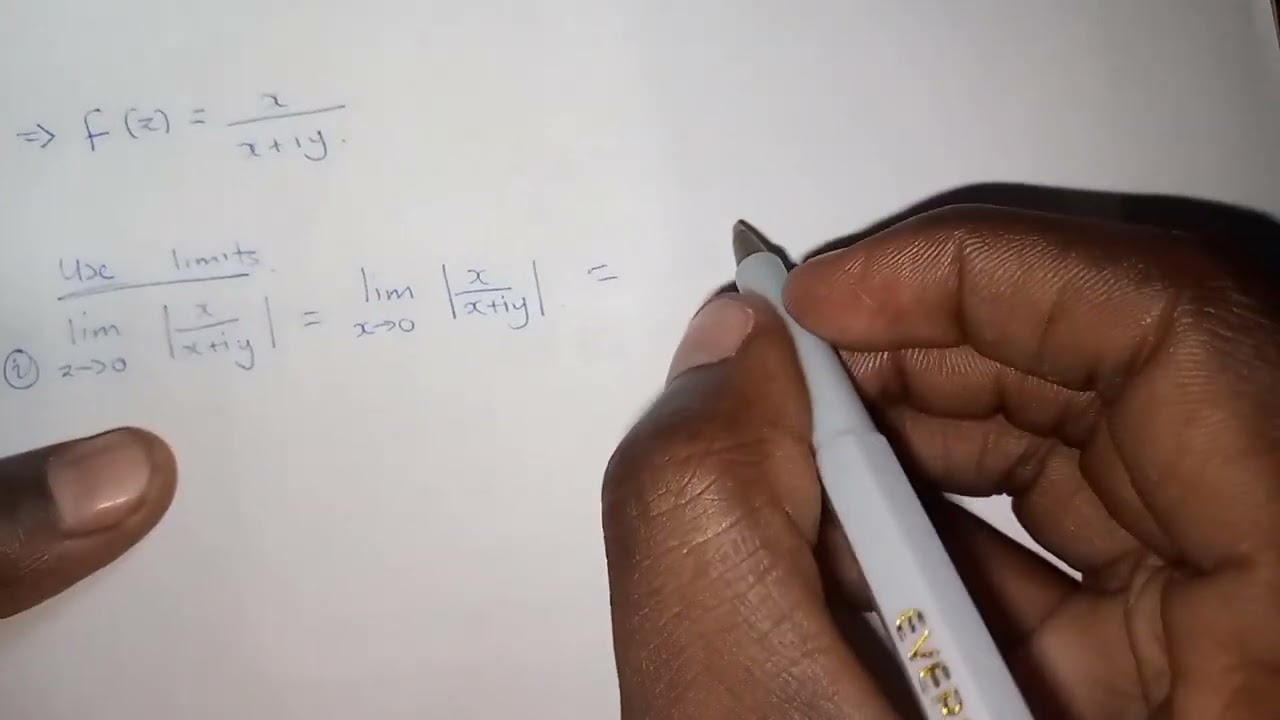 ⇒ f(z) = x / x+iy.
Use limits.
(i) lim z→0 |x / x+iy| = lim x→0 |x / x+iy| =
EVER